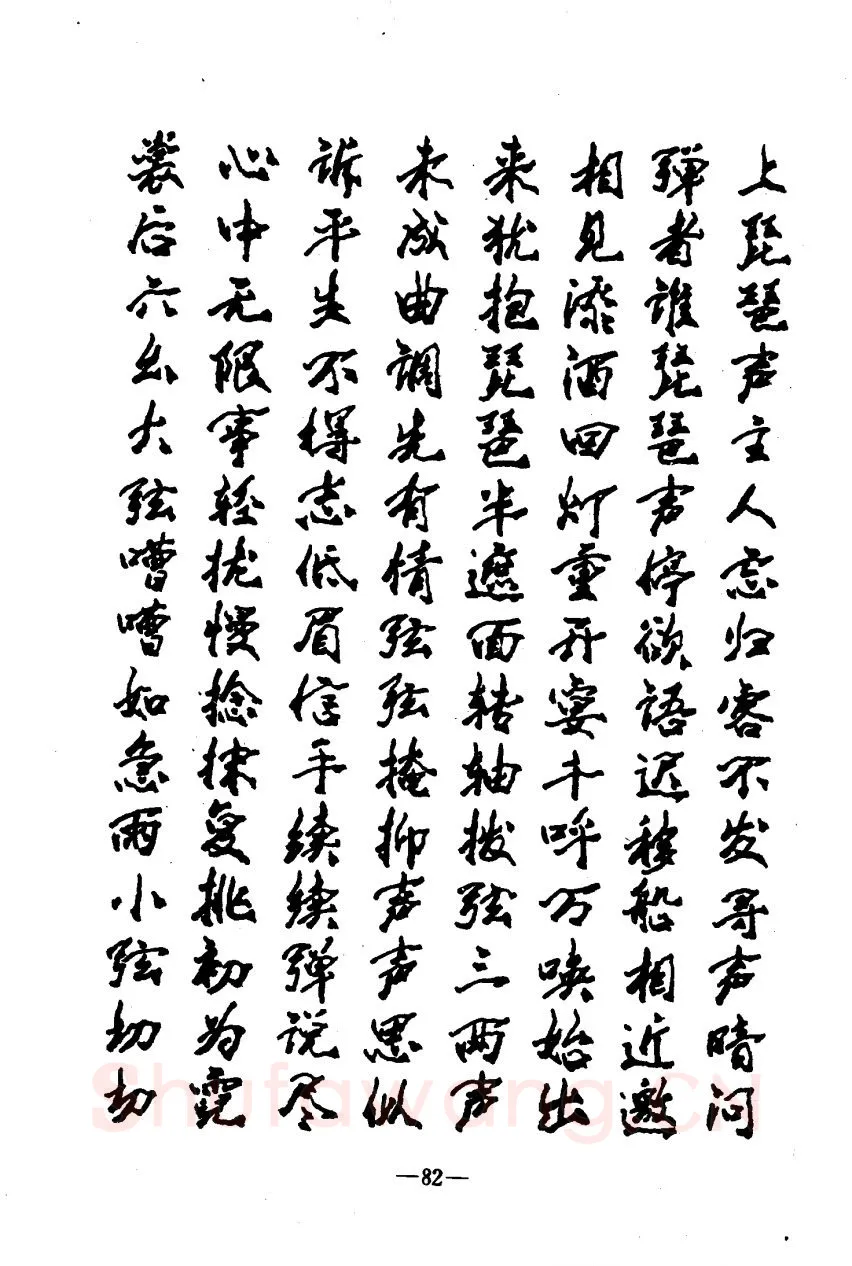 上琵琶声主人忘归客不发寻声暗问
弹者谁琵琶声停欲语迟移船相近邀
相见添酒回灯重开宴千呼万唤始出
来犹抱琵琶半遮面转轴拨弦三两声
未成曲调先有情弦弦掩抑声声思似
诉平生不得志低眉信手续续弹说尽
心中无限事轻拢慢捻抹复挑初为霓
裳后六幺大弦嘈嘈如急雨小弦切切
Shufawang.CN
—82—